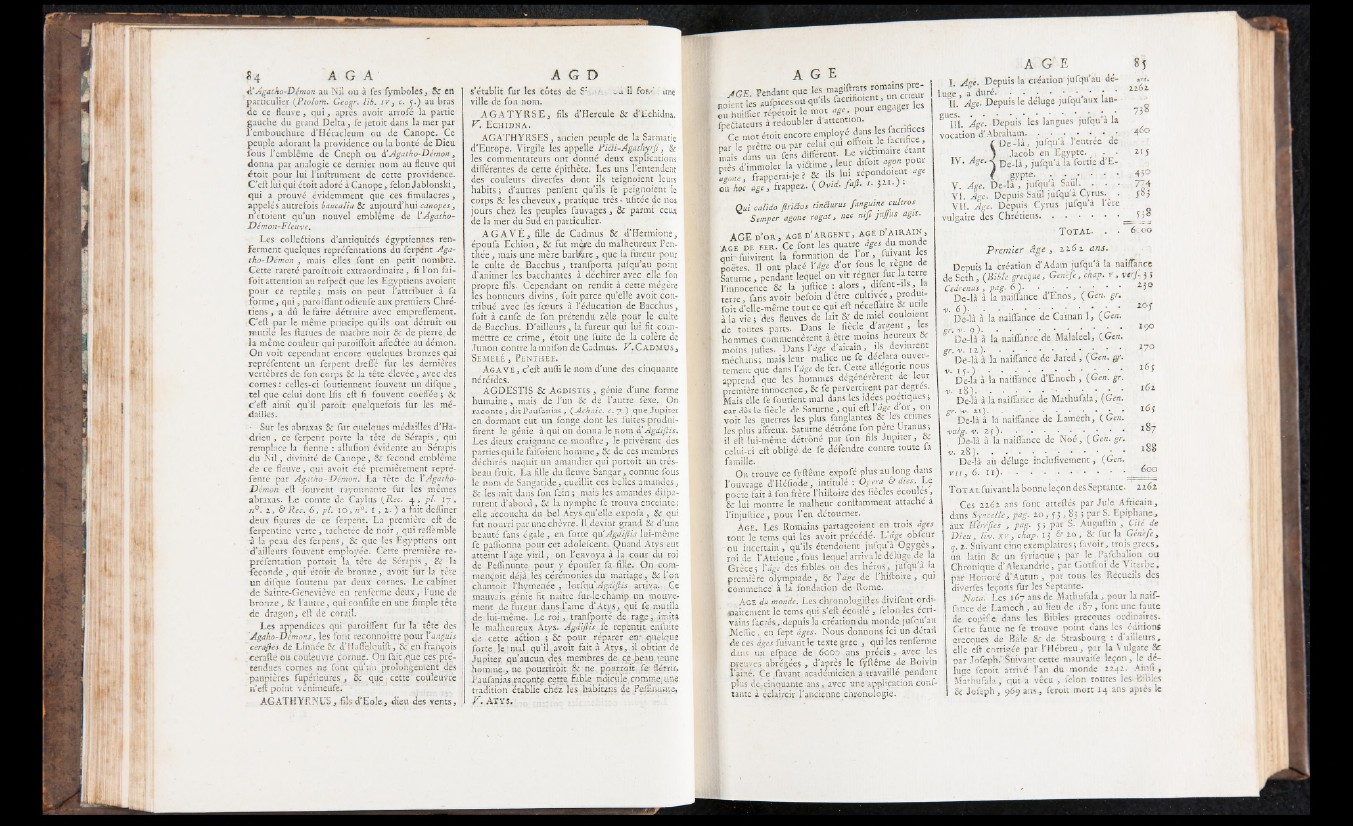 84 A G A
d'Agatho-Démon au Nil ou à ses symboles, & en
particulier (Ptolom. Geogr. lib. IV, c. 5.) au bras
de ce fleuve, qui, après avoir arrosé la partie
gauche du grand Delta, se jetoit dans la mer par
l'embouchure d'Héracleum ou de Canope. Ce
peuple adorant la providence ou la bonté de Dieu
sous l'emblême de Cneph ou d'Agatho-Démon,
donna par analogie ce dernier nom au fleuve qui
étoit pour lui l'instrument de cette providence.
C'est lui qui étoit adoré à Canope, selon Jablonski,
qui a prouvé évidemment que ces simulacres,
appelés autrefois baucalia & aujourd'hui canopes,
n'étoient qu'un nouvel emblême de l'Agatho-
Démon-Fleuve.
Les collections d'antiquités égyptiennes ren-
ferment quelques représentations du serpent Aga-
tho-Démon, mais elles sont en petit nombre.
Cette rareté paroîtroit extraordinaire, si l'on fai-
soit attention au respect que les Egyptiens avoient
pour ce reptile; mais on peut l'attribuer à sa
forme, qui, paroissant odieuse aux premiers Chré-
tiens, a dû le faire détruire avec empressement.
C'est par le même principe qu'ils ont détruit ou
mutilé les statues de marbre noir & de pierre de
la même couleur qui paroissoit affectée au démon.
On voit cependant encore quelques bronzes qui
représentent un serpent dressé sur les dernières
vertèbres de son corps & la tête élevée, avec des
cornes: celles-ci soutiennent souvent un disque,
tel que celui dont Isis est si souvent coeffée; &
c'est ainsi qu'il paroît quelquefois sur les mé-
dailles.
Sur les abraxas & sur quelques médailles d'Ha-
drien, ce serpent porte la tête de Sérapis, qui
remplace la sienne: allusion évidente au Sérapis
du Nil, divinité de Canope, & second emblême
de ce fleuve, qui avoit été premièrement repré-
senté par Agatho-Démon. La tête de l'Agatho-
Démon est souvent rayonnante sur les mêmes
abraxas. Le comte de Caylus (Rec. 4, pl. 17,
n°. 2. & Rec. 6, pl. 10, n°. 1, 2.) a fait dessiner
deux figures de ce serpent. La première est de
serpentine verte, tachetée de noir, qui ressemble
à la peau des serpens, & que les Egyptiens ont
d'ailleurs souvent employée. Cette première re-
présentation portoit la tête de Sérapis, & la
seconde, qui étoit de bronze, avoit sur la tête
un disque soutenu par deux cornes. Le cabinet
de Sainte-Geneviève en renferme deux, l'une de
bronze, & l'autre, qui consiste en une simple tête
de dragon, est de corail.
Les appendices qui paroissent sur la tête des
Agatho-Démons, les font reconnoître pour l'anguis
cerastes de Linnée & d'Hasselquist, & en françois
ceraste ou couleuvre cornue. On sait que ces pré-
tendues cornes ne sont qu'un prolongement des
paupières supérieures, & que cette couleuvre
n'est point vénimeuse.
AGATHYRNUS, fils d'Eole, dieu des vents,
A G D
s'établit sur les côtes de où il une
ville de son nom.
AGATYRSE, fils d'Hercule & d'Echidna.
V. ECHIDNA.
AGATHYRSES, ancien peuple de la Sarmatie
d'Europe. Virgile les appelle Picti-Agathyrsi, &
les commentateurs ont donné deux explications
différentes de cette épithète. Les uns l'entendent
des couleurs diverses dont ils teignoient leurs
habits; d'autres pensent qu'ils se peignoient le
corps & les cheveux, pratique très-usitée de nos
jours chez les peuples sauvages, & parmi ceux
de la mer du Sud en particulier.
AGAVÉ, fille de Cadmus & d'Hermione,
épousa Echion, & fut mère du malheureux Pen-
thée, mais une mère barbare, que la fureur pour
le culte de Bacchus, transporta jusqu'au point
d'animer les bacchantes à déchirer avec elle son
propre fils. Cependant on rendit à cette mégère
les honneurs divins, soit parce qu'elle avoit con-
tribué avec ses sœurs à l'éducation de Bacchus,
soit à cause de son prétendu zèle pour le culte
de Bacchus. D'ailleurs, la fureur qui lui fit com-
mettre ce crime, étoit une suite de la colère de
Junon contre la maison de Cadmus. V. CADMUS,
SEMELÉ, PENTHÉE.
AGAVE, c'est aussi le nom d'une des cinquante
néréides.
AGDESTIS & AGDISTIS, génie d'une forme
humaine, mais de l'un & de l'autre sexe. On
raconte, dit Pausanias, (Achaic. c. 7.) que Jupiter
en dormant eut un songe dont les suites produi-
sirent le génie à qui on donna le nom d'Agdistis.
Les dieux craignant ce monstre, le privèrent des
parties qui le faisoient homme, & de ces membres
déchirés naquit un amandier qui portoit un très-
beau fruit. La fille du fleuve Sangar, connue sous
le nom de Sangaride, cueillit ces belles amandes,
& les mit dans son sein; mais les amandes dispa-
rurent d'abord, & la nymphe se trouva enceinte:
elle accoucha du bel Atys qu'elle exposa, & qui
fut nourri par une chèvre. Il devint grand & d'une
beauté sans égale, en sorte qu'Agdistis lui-même
se passionna pour cet adolescent. Quand Atys eut
atteint l'âge viril, on l'envoya à la cour du roi
de Pessinunte pour y épouser sa fille. On com-
mençoit déjà les cérémonies du mariage, & l'on
chantoit l'hymenée, lorsqu'Agdistis arriva. Ce
mauvais génie fit naître sur-le-champ un mouve-
ment de fureur dans l'ame d'Atys, qui se mutila
de lui-même. Le roi, transporté de rage, imita
le malheureux Atys. Agdistis se repentit ensuite
de cette action; & pour réparer en quelque
sorte le mal qu'il avoit fait à Atys, il obtint de
Jupiter qu'aucun des membres de ce beau jeune
homme, ne pourriroit & ne pourroit se flétrir.
Pausanias raconte cette fable ridicule comme une
tradition établie chez les habitans de Pessinunte.
V. ATYS.
A G E
AGE. Pendant que les magistrats romains pre-
noient les auspices ou qu'ils sacrifioient, un crieur
ou huissier répétoit le mot age, pour engager les
spectateurs à redoubler d'attention.
Ce mot étoit encore employé dans les sacrifices
par le prêtre ou par celui qui offroit le sacrifice,
mais dans un sens différent. Le victimaire étant
près d'immoler la victime, leur disoit agon pour
agone, frapperai-je? & ils lui répondoient age
ou hoc age, frappez. (Ovid. fast. 1. 321.):
Qui calido strictos tincturus sanguine cultros
Semper agone rogat, nec nisi jussus agit.
AGE D'OR, AGE D'ARGENT, AGE D'AIRAIN,
AGE DE FER. Ce sont les quatre âges du monde
qui suivirent la formation de l'or, suivant les
poëtes. Il ont placé l'âge d'or sous le règne de
Saturne, pendant lequel on vit régner sur la terre
l'innocence & la justice: alors, disent-ils, la
terre, sans avoir besoin d'être cultivée, produi-
soit d'elle-même tout ce qui est nécessaire & utile
à la vie; des fleuves de lait & de miel couloient
de toutes parts. Dans le siècle d'argent, les
hommes commencèrent à être moins heureux &
moins justes. Dans l'âge d'airain, ils devinrent
méchans; mais leur malice ne se déclara ouver-
tement que dans l'âge de fer. Cette allégorie nous
apprend que les hommes dégénérèrent de leur
première innocence, & se pervertirent par degrés.
Mais elle se soutient mal dans les idées poétiques;
car dès le siècle de Saturne, qui est l'âge d'or, on
voit les guerres les plus sanglantes & les crimes
les plus affreux. Saturne détrône son père Uranus;
il est lui-même détrôné par son fils Jupiter, &
celui-ci est obligé de se défendre contre toute sa
famille.
On trouve ce système exposé plus au long dans
l'ouvrage d'Hésiode, intitulé: Opera & dies. Le
poëte fait à son frère l'histoire des siècles écoulés,
& lui montre le malheur constamment attaché à
l'injustice, pour l'en détourner.
AGE. Les Romains partageoient en trois âges
tout le tems qui les avoit précédé. L'âge obscur
ou incertain, qu'ils étendoient jusqu'à Ogygès,
roi de l'Attique, sous lequel arriva le déluge de la
Grèce; l'âge des fables ou des héros, jusqu'à la
première olympiade, & l'âge de l'histoire, qui
commence à la fondation de Rome.
AGE du monde. Les chronologistes divisent ordi-
nairement le tems qui s'est écoulé, selon les écri-
vains sacrés, depuis la création du monde jusqu'au
Messie, en sept âges. Nous donnons ici un détail
de ces âges suivant le texte grec, qui les renferme
dans un espace de 6000 ans précis, avec les
preuves abrégées, d'après le système de Boivin
l'aîné. Ce savant académicien a travaillé pendant
plus de cinquante ans, avec une application cons-
tante à éclaircir l'ancienne chronologie.
A G E 85
I. Age. Depuis la création jusqu'au dé- ans.
luge, a duré. . . . . . . . 2262
II. Age. Depuis le déluge jusqu'aux lan-
gues. . . . . . . . . 738
III. Age. Depuis les langues jusqu'à la
vocation d'Abraham. . . . . . . 460
IV. Age. { De-là, jusqu'à l'entrée de
Jacob en Egypte. . . . 215
De-là, jusqu'à la sortie d'E-
gypte. . . . . . 430
V. Age. De-là, jusqu'à Saül. . . . 774
VI. Age. Depuis Saül jusqu'à Cyrus. . . 583
VII. Age. Depuis Cyrus jusqu'à l'ère
vulgaire des Chrétiens. . . . . . . 538
TOTAL. . . 6000
Premier âge, 2262 ans.
Depuis la création d'Adam jusqu'à la naissance
de Seth, (Bible grecque, Genèse, chap. v, vers. 3;
Cedrenus, pag. 6). . . . . . . . 230
De-là à la naissance d'Enos, (Gen. gr.
v. 6). . . . . . . . . 205
De-là à la naissance de Caïnan I, (Gen.
gr. v. 9). . . . . . . . . 190
De-là à la naissance de Malaleel, (Gen.
gr. v. 12). . . . . . . . . 170
De-là à la naissance de Jared, (Gen. gr.
v. 15). . . . . . . . . 165
De-là à la naissance d'Enoch, (Gen. gr.
v. 18). . . . . . . . . 162
De-là à la naissance de Mathusala, (Gen.
gr. v. 21). . . . . . . . . 165
De-là à la naissance de Lamech, (Gen.
vulg. v. 25). . . . . . . . . 187
De-là à la naissance de Noé, (Gen. gr.
v. 28). . . . . . . . . 188
De-là au déluge inclusivement, (Gen.
VII, 6. 11). . . . . . . . . 600
TOTAL suivant la bonne leçon des Septante. 2262
Ces 2262 ans sont attestés par Jule Africain,
dans Syncelle, pag. 20, 53, 83; par S. Epiphane,
aux Hérésies, pag. 5; par S. Augustin, Cité de
Dieu, liv. XV, chap. 13 & 20, & sur la Génèse,
q. 2. Suivant cinq exemplaires; savoir, trois grecs,
un latin & un syriaque; par le Paschalion ou
Chronique d'Alexandrie, par Goffroi de Viterbe,
par Honoré d'Autun, par tous les Recueils des
diverses leçons sur les Septante.
Nota. Les 167 ans de Mathusala, pour la nais-
sance de Lamech, au lieu de 187, sont une faute
de copiste dans les Bibles grecques ordinaires.
Cette faute ne se trouve point dans les éditions
grecques de Bâle & de Strasbourg: d'ailleurs,
elle est corrigée par l'Hébreu, par la Vulgate &
par Joseph. Suivant cette mauvaise leçon, le dé-
luge seroit arrivé l'an du monde 2242. Ainsi,
Mathusala, qui a vécu, selon toutes les Bibles
& Joseph, 969 ans, seroit mort 14 ans après le